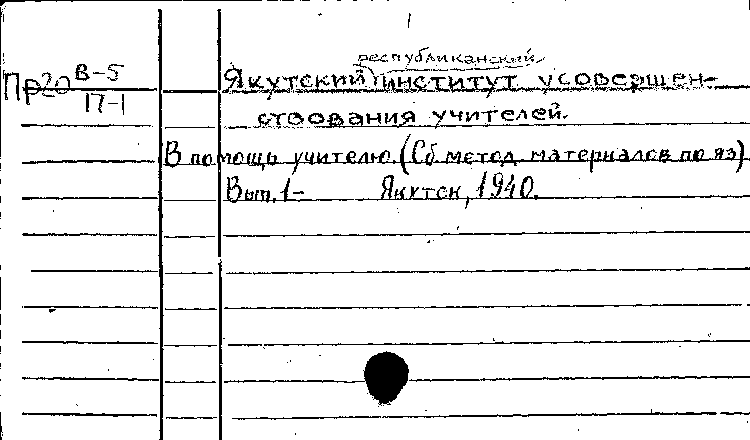 Пр20 В-5
17-1
республиканский
Якутский институт усовершен-
ствования учителей.
В помощь учителю. (Сб метод. материалов по яз)
Вып. 1- Якутск, 1940.